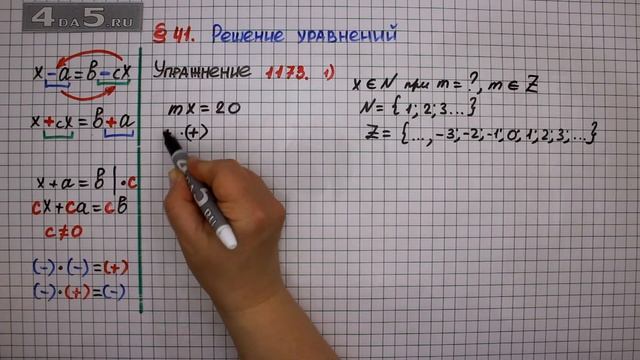 4DA5.RU
§ 41. Решение уравнений
x - a = b - cx
x + cx = b + a
x + a = b | · c
cx + ca = cb
c ≠ 0
(-) · (-) = (+)
(-) · (+) = (-)
Упражнение 1173. 1)
mx = 20
· (+)
x ∈ N при m = ?, m ∈ Z
N = { 1; 2; 3 ... }
Z = { ..., -3; -2; -1; 0; 1; 2; 3; ... }